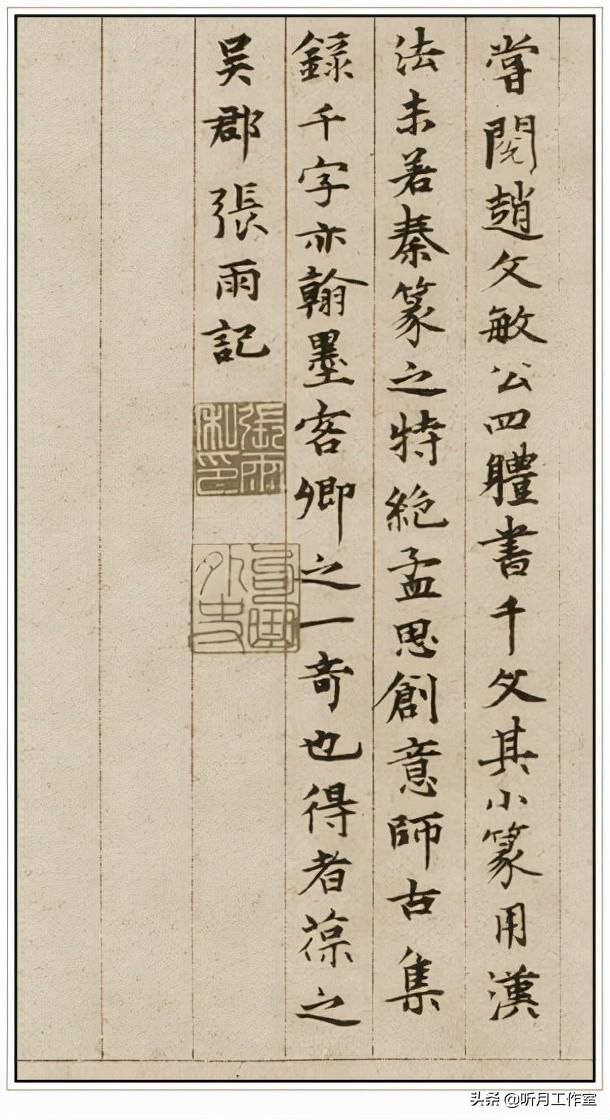 嘗閱趙文敏公四體書千文其小篆用漢
法未若秦篆之特絕孟思創意師古集
錄千字亦翰墨客卿之一奇也得者葆之
吳郡張雨記
張雨私印
句曲外史
头条 @听月工作室